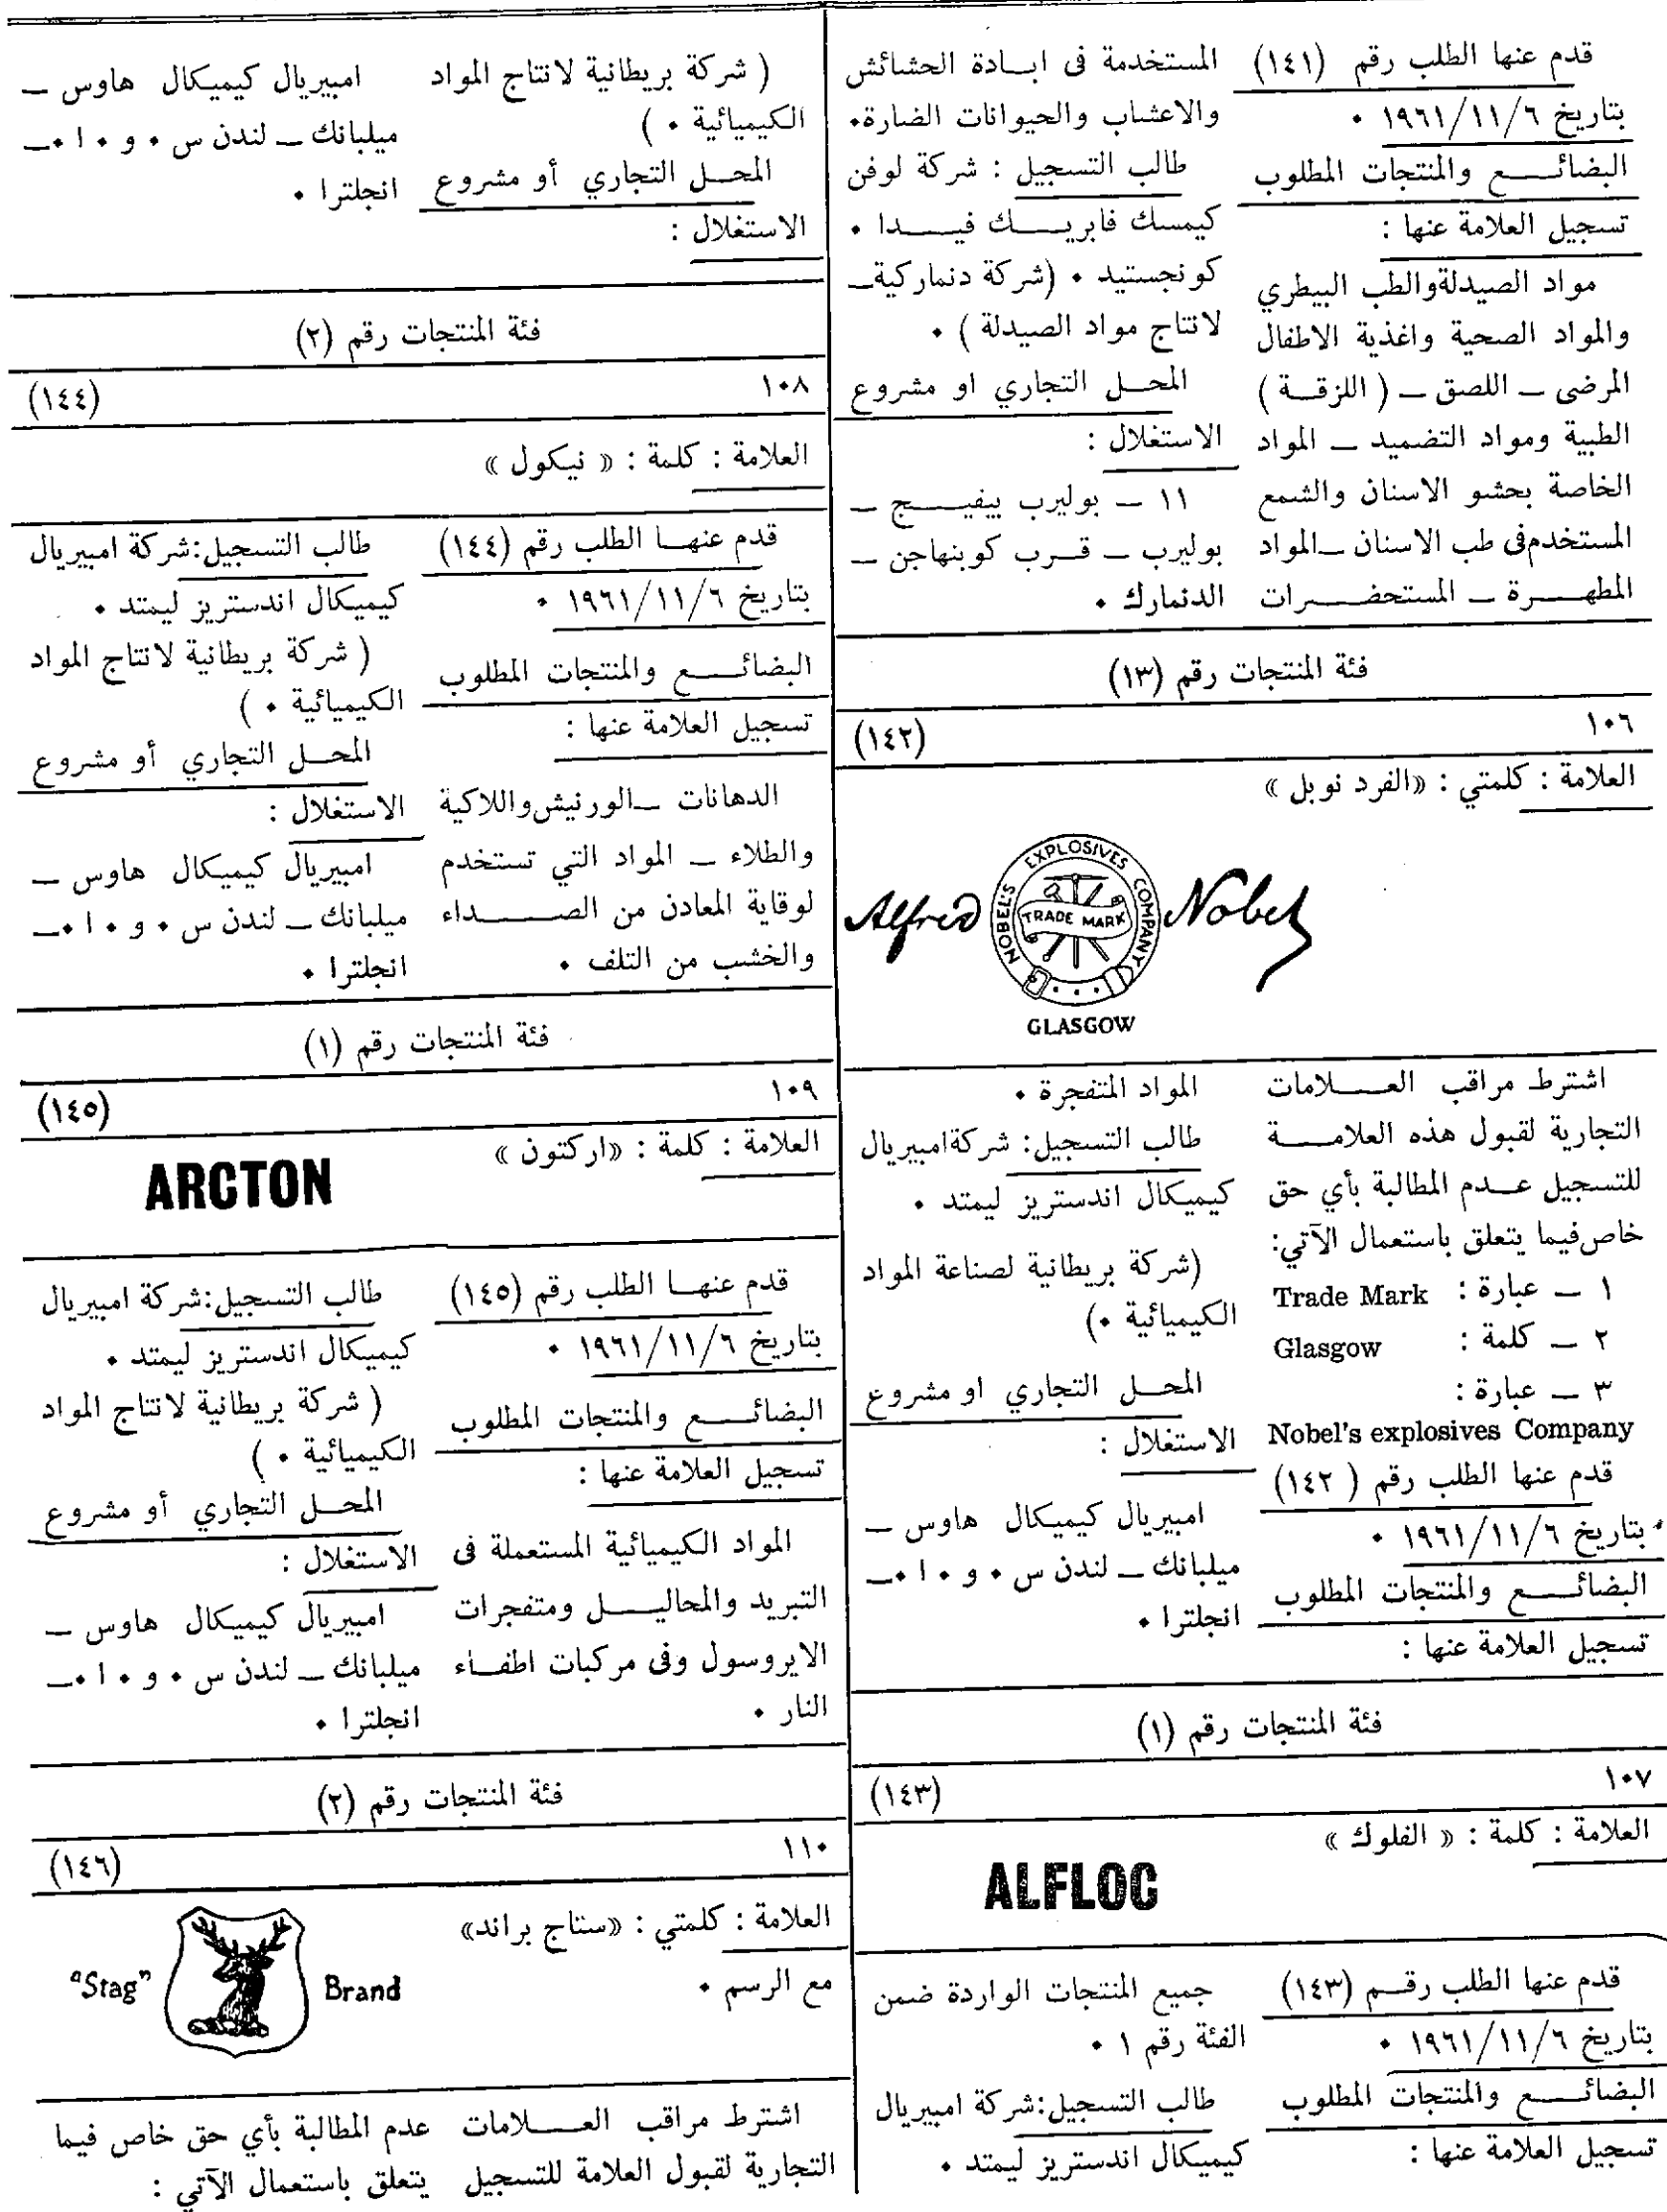 قدم عنها الطلب رقم (١٤١)
بتاريخ ١٩٦١/١١/٦ ٠
البضائـــع والمنتجات المطلوب
تسجيل العلامة عنها :
مواد الصيدلة والطب البيطري
والمواد الصحية واغذية الاطفال
المرضى ــ اللصق ــ ( اللزقــة )
الطبية ومواد التضميد ــ المواد
الخاصة بحشو الاسنان والشمع
المستخدم فى طب الاسنان ــ المواد
المطهـــرة ــ المستحضـــرات
المستخدمة فى ابــادة الحشائش
والاعشاب والحيوانات الضارة٠
طالب التسجيل : شركة لوفن
كيمسك فابريـــك فيـــدا ٠
كونجستيد ٠ (شركة دنماركية ــ
لانتاج مواد الصيدلة ) ٠
المحــل التجاري او مشروع
الاستغلال :
١١ ــ بوليرب بيفيـــج ــ
بوليرب ــ قــرب كوبنهاجن ــ
الدنمارك ٠
فئة المنتجات رقم (١٣)
١٠٦ (١٤٢)
العلامة : كلمتي : «الفرد نوبل »
Alfred Nobel
NOBEL'S EXPLOSIVES COMPANY
TRADE MARK
GLASGOW
اشترط مراقب العـــلامات
التجارية لقبول هذه العلامـــة
للتسجيل عــدم المطالبة بأي حق
خاص فيما يتعلق باستعمال الآتي:
١ ــ عبارة : Trade Mark
٢ ــ كلمة : Glasgow
٣ ــ عبارة :
Nobel's explosives Company
قدم عنها الطلب رقم ( ١٤٢)
بتاريخ ١٩٦١/١١/٦ ٠
البضائـــع والمنتجات المطلوب
تسجيل العلامة عنها :
المواد المتفجرة ٠
طالب التسجيل: شركة امبيريال
كيميكال اندستريز ليمتد ٠
(شركة بريطانية لصناعة المواد
الكيميائية ٠)
المحــل التجاري او مشروع
الاستغلال :
امبيريال كيميكال هاوس ــ
ميلبانك ــ لندن س ٠ و ٠ ا ٠ــ
انجلترا ٠
فئة المنتجات رقم (١)
١٠٧ (١٤٣)
العلامة : كلمة : « الفلوك »
ALFLOC
قدم عنها الطلب رقــم (١٤٣)
بتاريخ ١٩٦١/١١/٦ ٠
البضائـــع والمنتجات المطلوب
تسجيل العلامة عنها :
جميع المنتجات الواردة ضمن
الفئة رقم ١ ٠
طالب التسجيل:شركة امبيريال
كيميكال اندستريز ليمتد ٠
( شركة بريطانية لانتاج المواد
الكيميائية ٠ )
المحــل التجاري أو مشروع
الاستغلال :
امبيريال كيميكال هاوس ــ
ميلبانك ــ لندن س ٠ و ٠ ا ٠ــ
انجلترا ٠
فئة المنتجات رقم (٢)
١٠٨ (١٤٤)
العلامة : كلمة : « نيكول »
قدم عنهــا الطلب رقم (١٤٤)
بتاريخ ١٩٦١/١١/٦ ٠
البضائـــع والمنتجات المطلوب
تسجيل العلامة عنها :
الدهانات ــالورنيش واللاكية
والطلاء ــ المواد التي تستخدم
لوقاية المعادن من الصـــداء
والخشب من التلف ٠
طالب التسجيل:شركة امبيريال
كيميكال اندستريز ليمتد ٠
( شركة بريطانية لانتاج المواد
الكيميائية ٠ )
المحــل التجاري أو مشروع
الاستغلال :
امبيريال كيميكال هاوس ــ
ميلبانك ــ لندن س ٠ و ٠ ا ٠ــ
انجلترا ٠
فئة المنتجات رقم (١)
١٠٩ (١٤٥)
العلامة : كلمة : «اركتون »
ARCTON
قدم عنهــا الطلب رقم (١٤٥)
بتاريخ ١٩٦١/١١/٦ ٠
البضائـــع والمنتجات المطلوب
تسجيل العلامة عنها :
المواد الكيميائية المستعملة فى
التبريد والمحاليـــل ومتفجرات
الايروسول وفى مركبات اطفــاء
النار ٠
طالب التسجيل:شركة امبيريال
كيميكال اندستريز ليمتد ٠
( شركة بريطانية لانتاج المواد
الكيميائية ٠ )
المحــل التجاري أو مشروع
الاستغلال :
امبيريال كيميكال هاوس ــ
ميلبانك ــ لندن س ٠ و ٠ ا ٠ــ
انجلترا ٠
فئة المنتجات رقم (٢)
١١٠ (١٤٦)
العلامة : كلمتي : «ستاج براند»
مع الرسم ٠
"Stag" Brand
اشترط مراقب العـــلامات
التجارية لقبول العلامة للتسجيل
عدم المطالبة بأي حق خاص فيما
يتعلق باستعمال الآتي :